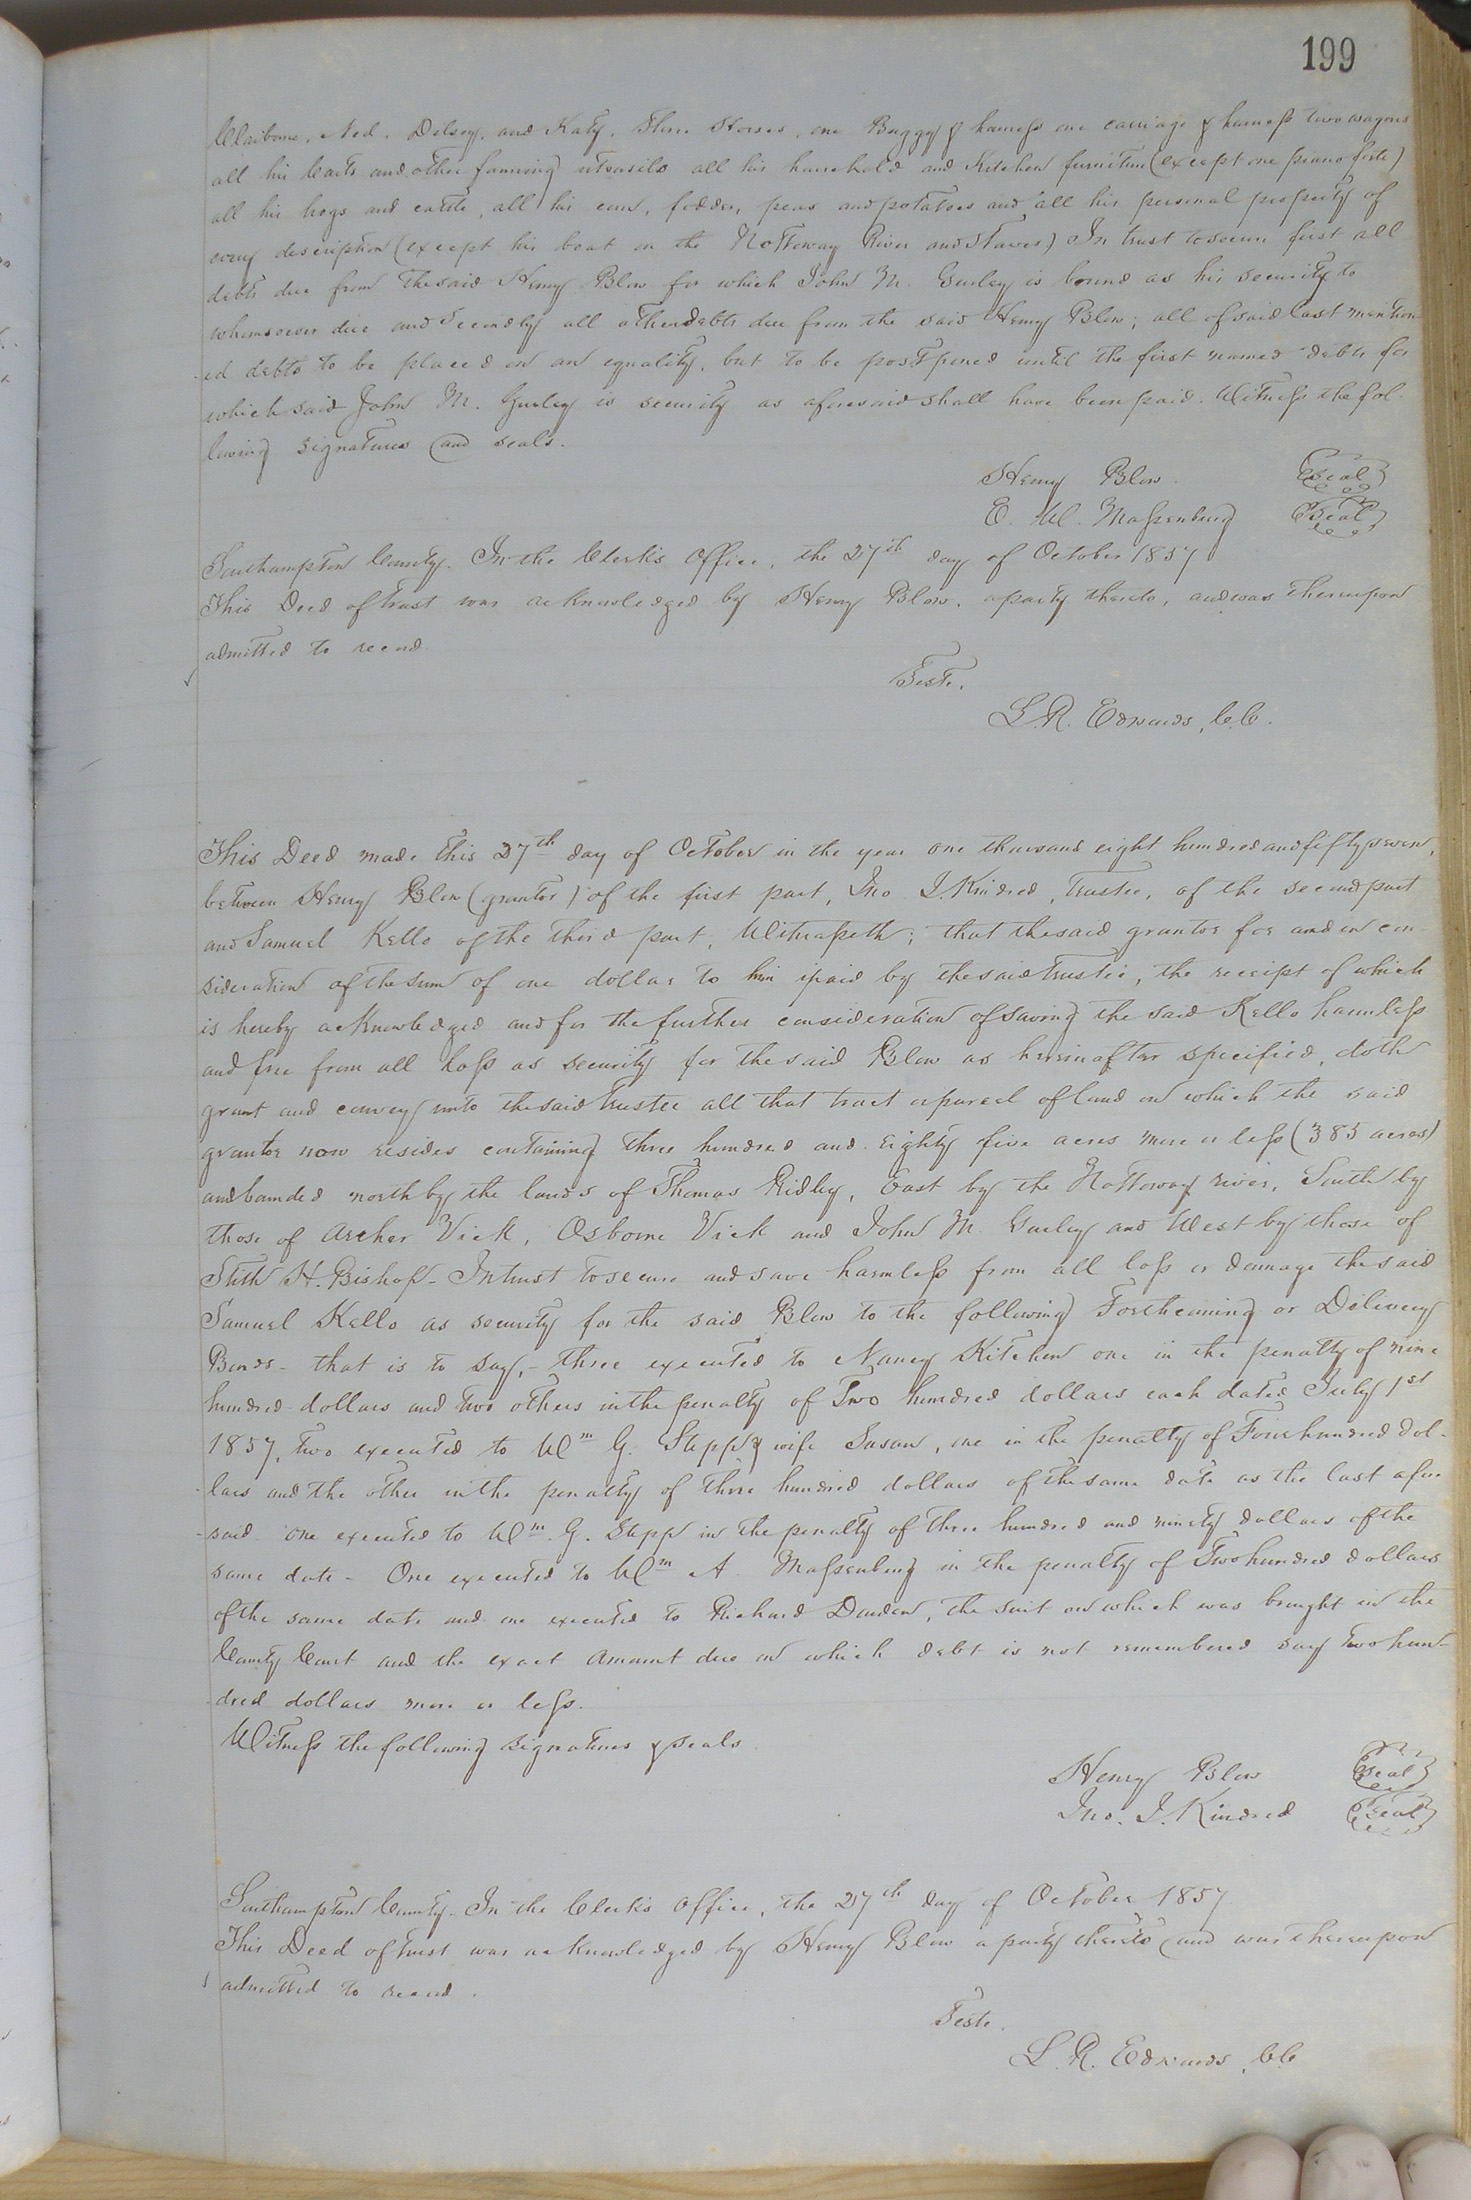 199
Claiborne, Ned, Delsey, and Katy, Three Horses, one Buggy & harness one carriage & harness two wagons
all his Carts and other farming utensils all his household and Kitchen furniture (except one piano forte)
all his hogs and cattle, all his corn, fodder, peas and potatoes and all his personal property of
every description (except his boat on the Nottoway River and Staves) In trust to secure first all
debts due from the said Henry Blow for which John M. Gurley is bound as his security to
whomsoever due and Secondly all other debts due from the said Henry Blow; all of said last mention
-ed debts to be placed on an equality, but to be postponed until the first named debts for
which said John M. Gurley is security as aforesaid shall have been paid. Witness the fol-
lowing signatures and seals.
Henry Blow. Seal
E. W. Massenburg Seal
Southampton County. In the Clerk's Office, the 27th day of October 1857
This Deed of trust was acknowledged by Henry Blow, a party thereto, and was thereupon
admitted to record.
Teste,
L. R. Edwards, C.C.
This Deed made this 27th day of October in the year one thousand eight hundred and fifty seven,
between Henry Blow (grantor) of the first part, Jno. J. Kindred, Trustee, of the second part
and Samuel Kello of the third part, Witnesseth; that the said grantor for and in con-
sideration of the sum of one dollar to him paid by the said trustee, the receipt of which
is hereby acknowledged and for the further consideration of saving the said Kello harmless
and free from all loss as security for the said Blow as hereinafter specified, doth
grant and convey unto the said trustee all that tract or parcel of land on which the said
grantor now resides containing three hundred and eighty five acres more or less (385 acres)
and bounded north by the lands of Thomas Ridley, East by the Nottoway river, South by
those of Archer Vick, Osborne Vick and John M. Gurley and West by those of
Stith H. Bishop - In trust to secure and save harmless from all loss or damage the said
Samuel Kello as security for the said Blow to the following Forthcoming or Delivery
Bonds - that is to say, - three executed to Nancy Kitchen one in the penalty of nine
hundred dollars and two others in the penalty of Two hundred dollars each dated July 1st
1857, two executed to Wm G. Stepp & wife Susan, one in the penalty of Four hundred dol-
lars and the other in the penalty of three hundred dollars of the same date as the last afore
-said one executed to Wm. G. Stepp in the penalty of three hundred and ninety dollars of the
same date - One executed to Wm A. Massenburg in the penalty of Two hundred dollars
of the same date and one executed to Richard Darden, the suit on which was brought in the
County Court and the exact amount due on which debt is not remembered say two hun-
dred dollars more or less.
Witness the following signatures & seals
Henry Blow Seal
Jno. J. Kindred Seal
Southampton County. In the Clerk's Office, the 27th day of October 1857
This Deed of trust was acknowledged by Henry Blow a party thereto and was thereupon
admitted to record.
Teste.
L. R. Edwards, C.C.